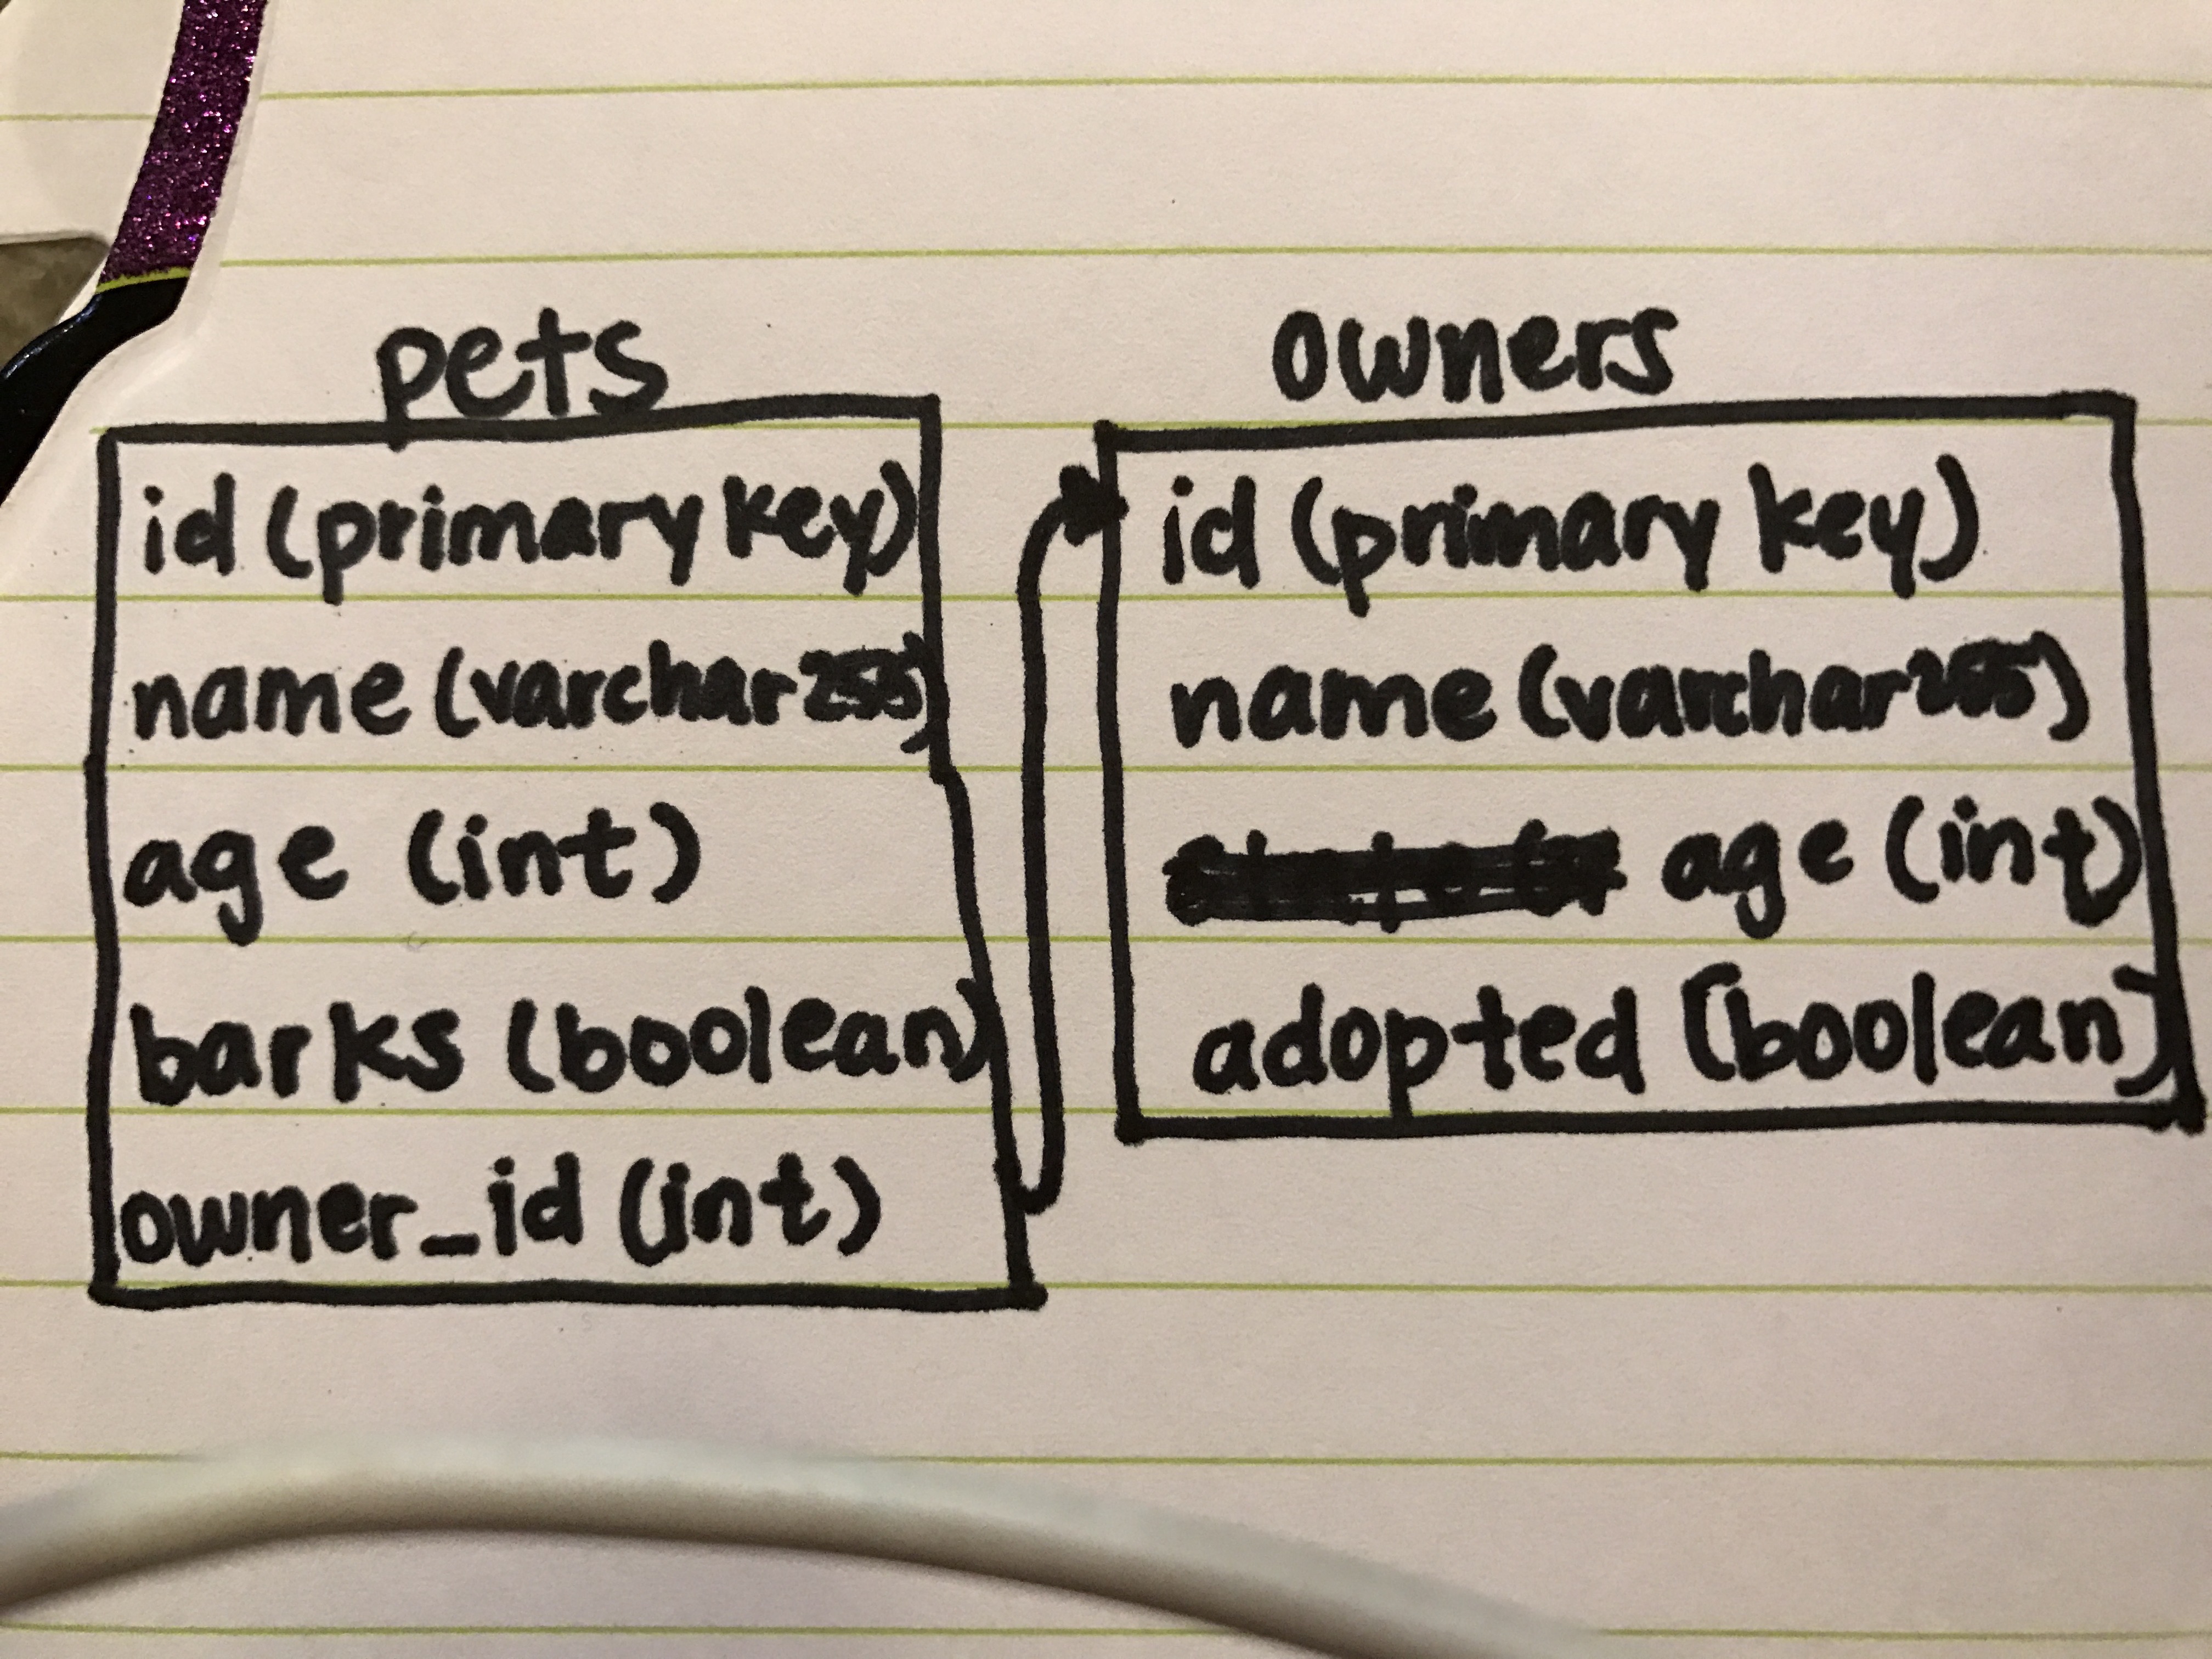 pets
id (primary key)
name (varchar 255)
age (int)
barks (boolean)
owner_id (int)
owners
id (primary key)
name (varchar 255)
age (int)
adopted (boolean)